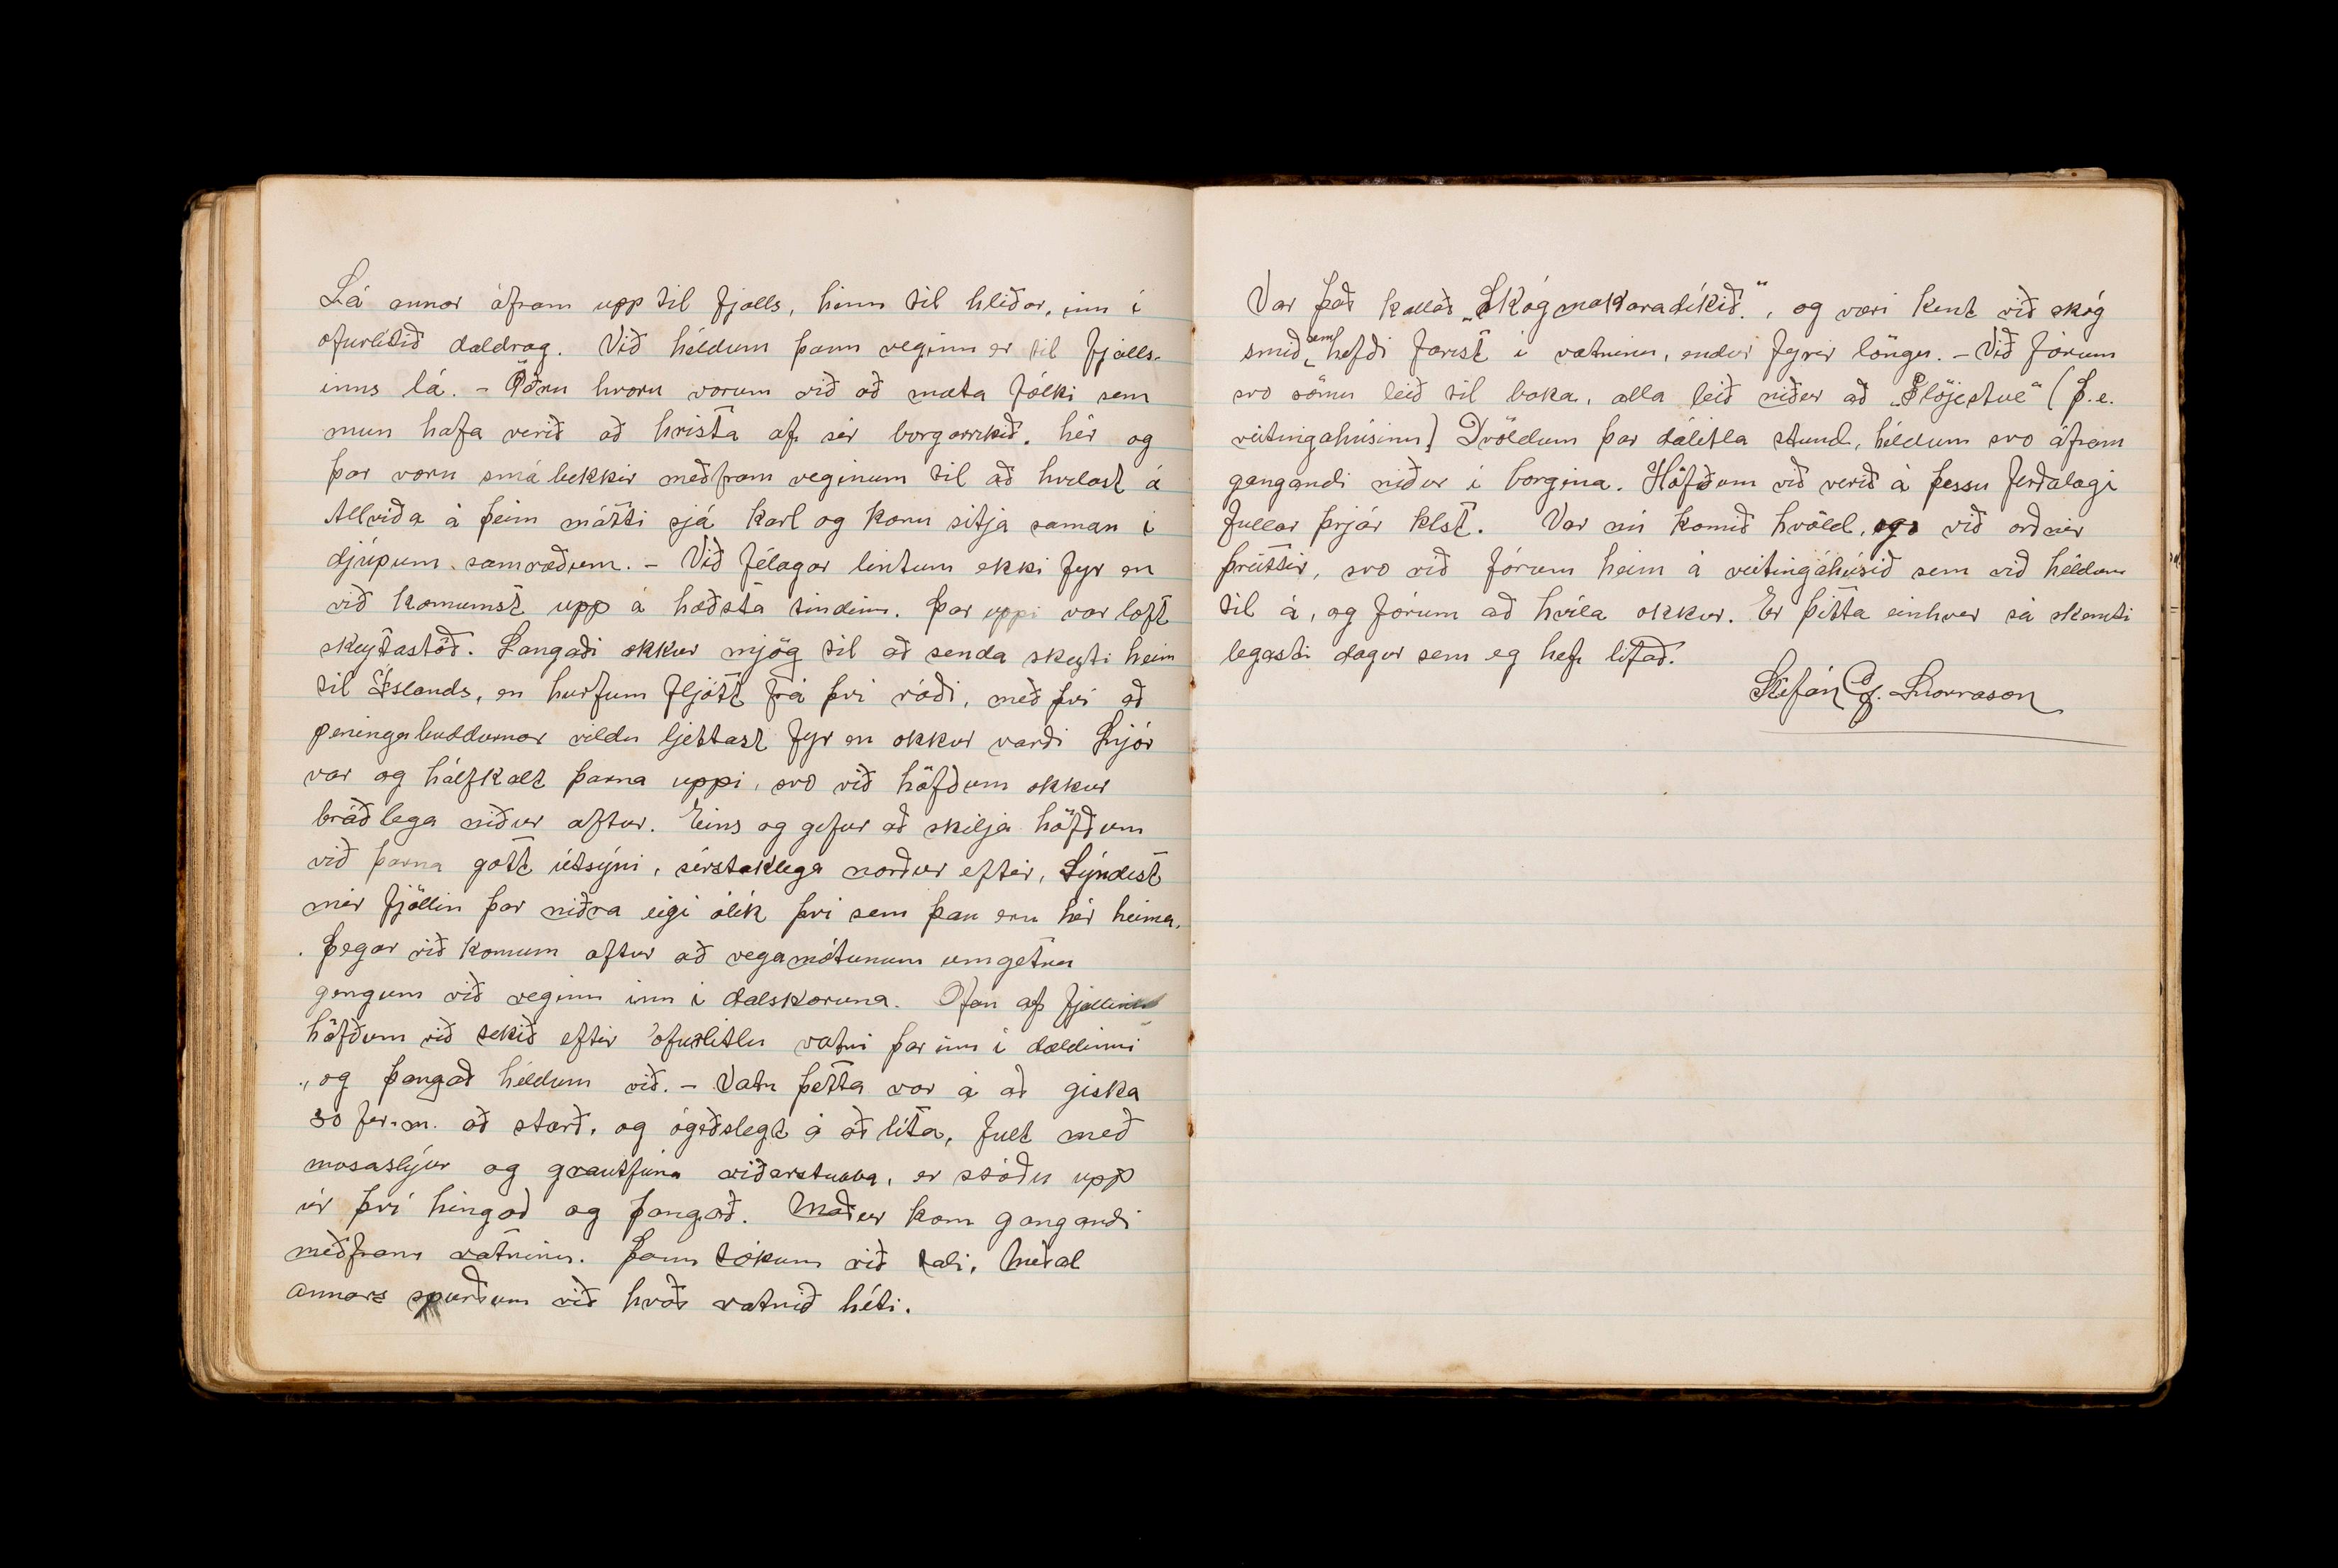 Lá annar áfram upp til fjalls, hinn til hliðar, inn í
ofurlítið daldrag. Við héldum þann veginn er til fjalls-
inns lá. - Öðru hvoru vorum við að mæta fólki sem
mun hafa verið að hrista af sér borgarrikið. hér og
þar voru smá bekkir meðfram veginum til að hvílast á
Allvíða á þeim mátti sjá karl og konu sitja saman í
djúpum samræðum. - Við félagar lintum ekki fyr en
við komumst upp á hæðsta tindinn. Þar uppi var loft
skeytastöð. Langaði okkur mjög til að senda skeyti heim
til Íslands, en hurfum fljótt frá því ráði, með því að
peningabuddurnar vildu ljettast fyr en okkur varði Snjór
var og hálfkalt þarna uppi, svo við höfðum okkur
bráðlega niður aftur. Eins og gefur að skilja höfðum
við þarna gott útsýni, sérstaklega norður eftir, Sýndist
mér fjöllin þar niðra eigi ólík því sem þau eru hér heima.
Þegar við komum aftur að vegamótunum umgetnu
gengum við veginn inn í dalskoruna. Ofan af fjallinu
höfðum við tekið eftir ofurlitlu vatni þar inn í dældinni
, og þangað héldum við. - Vatn þetta var á að giska
30 fer.m. að stærð, og ógeðslegt á að líta, fult með
mosaslýjur og grautfúna viðarstubba, er stóðu upp
úr því hingað og þangað. Maður kom gangandi
meðfram vatninu. Þann tókum við tali, Meðal
annars spurðum við hvað vatnið héti.
Var það kallað „Skógmakaradíkið.", og væri kent við skóg
smið, sem hefði farist í vatninu, endur fyrir löngu. - Við fórum
svo sömu leið til baka, alla leið niður að „Flöjestue" (þ.e.
veitingahúsinu) Dvöldum þar dálitla stund, héldum svo áfram
gangandi niður í borgina. Höfðum við verið á þessu ferðalagi
fullar þrjár klst. Var nú komið kvöld, og við orðnir
þreittir, svo við fórum heim á veitingáhúsið sem við héldum
til á, og fórum að hvíla okkur. Er þetta einhver sá skemti
legasti dagur sem eg hef lifað.
Stefán G. Snorrason